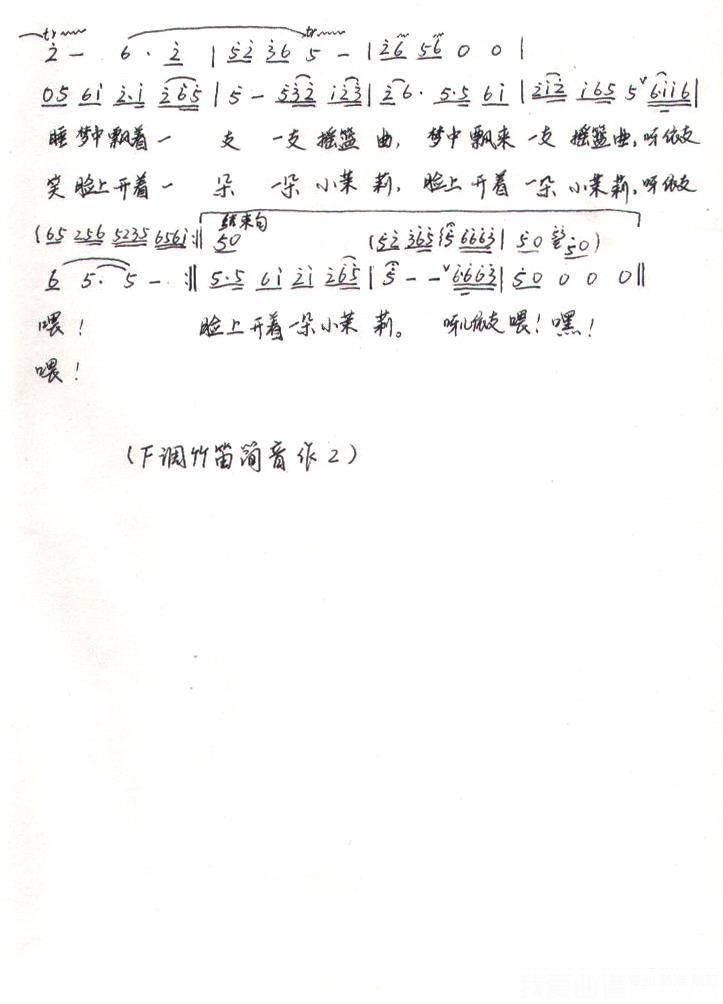 2 - 6 · 2 | 52 36 5 - | 26 56 0 0 |
05 61 2·1 265 | 5 - 532 123 | 26· 5·5 61 | 212 165 5 6·116 |
睡梦中飘着一 支 一支 摇篮 曲, 梦中飘来一支 摇篮曲,呀依支
笑脸上开着一 朵 一朵 小茉 莉, 脸上开着一朵小茉莉,呀依支
结束句
(65 256 5235 6561 :‖ 50 (52 365 35 6663 | 50 50)
6 5· 5 - :‖ 5·5 61 21 265 | 5 - - 6663 | 50 0 0 0 ‖
喂! 脸上开着一朵小茉 莉。 呀儿依支喂!嘿!
喂!
(下调竹笛简音作2)